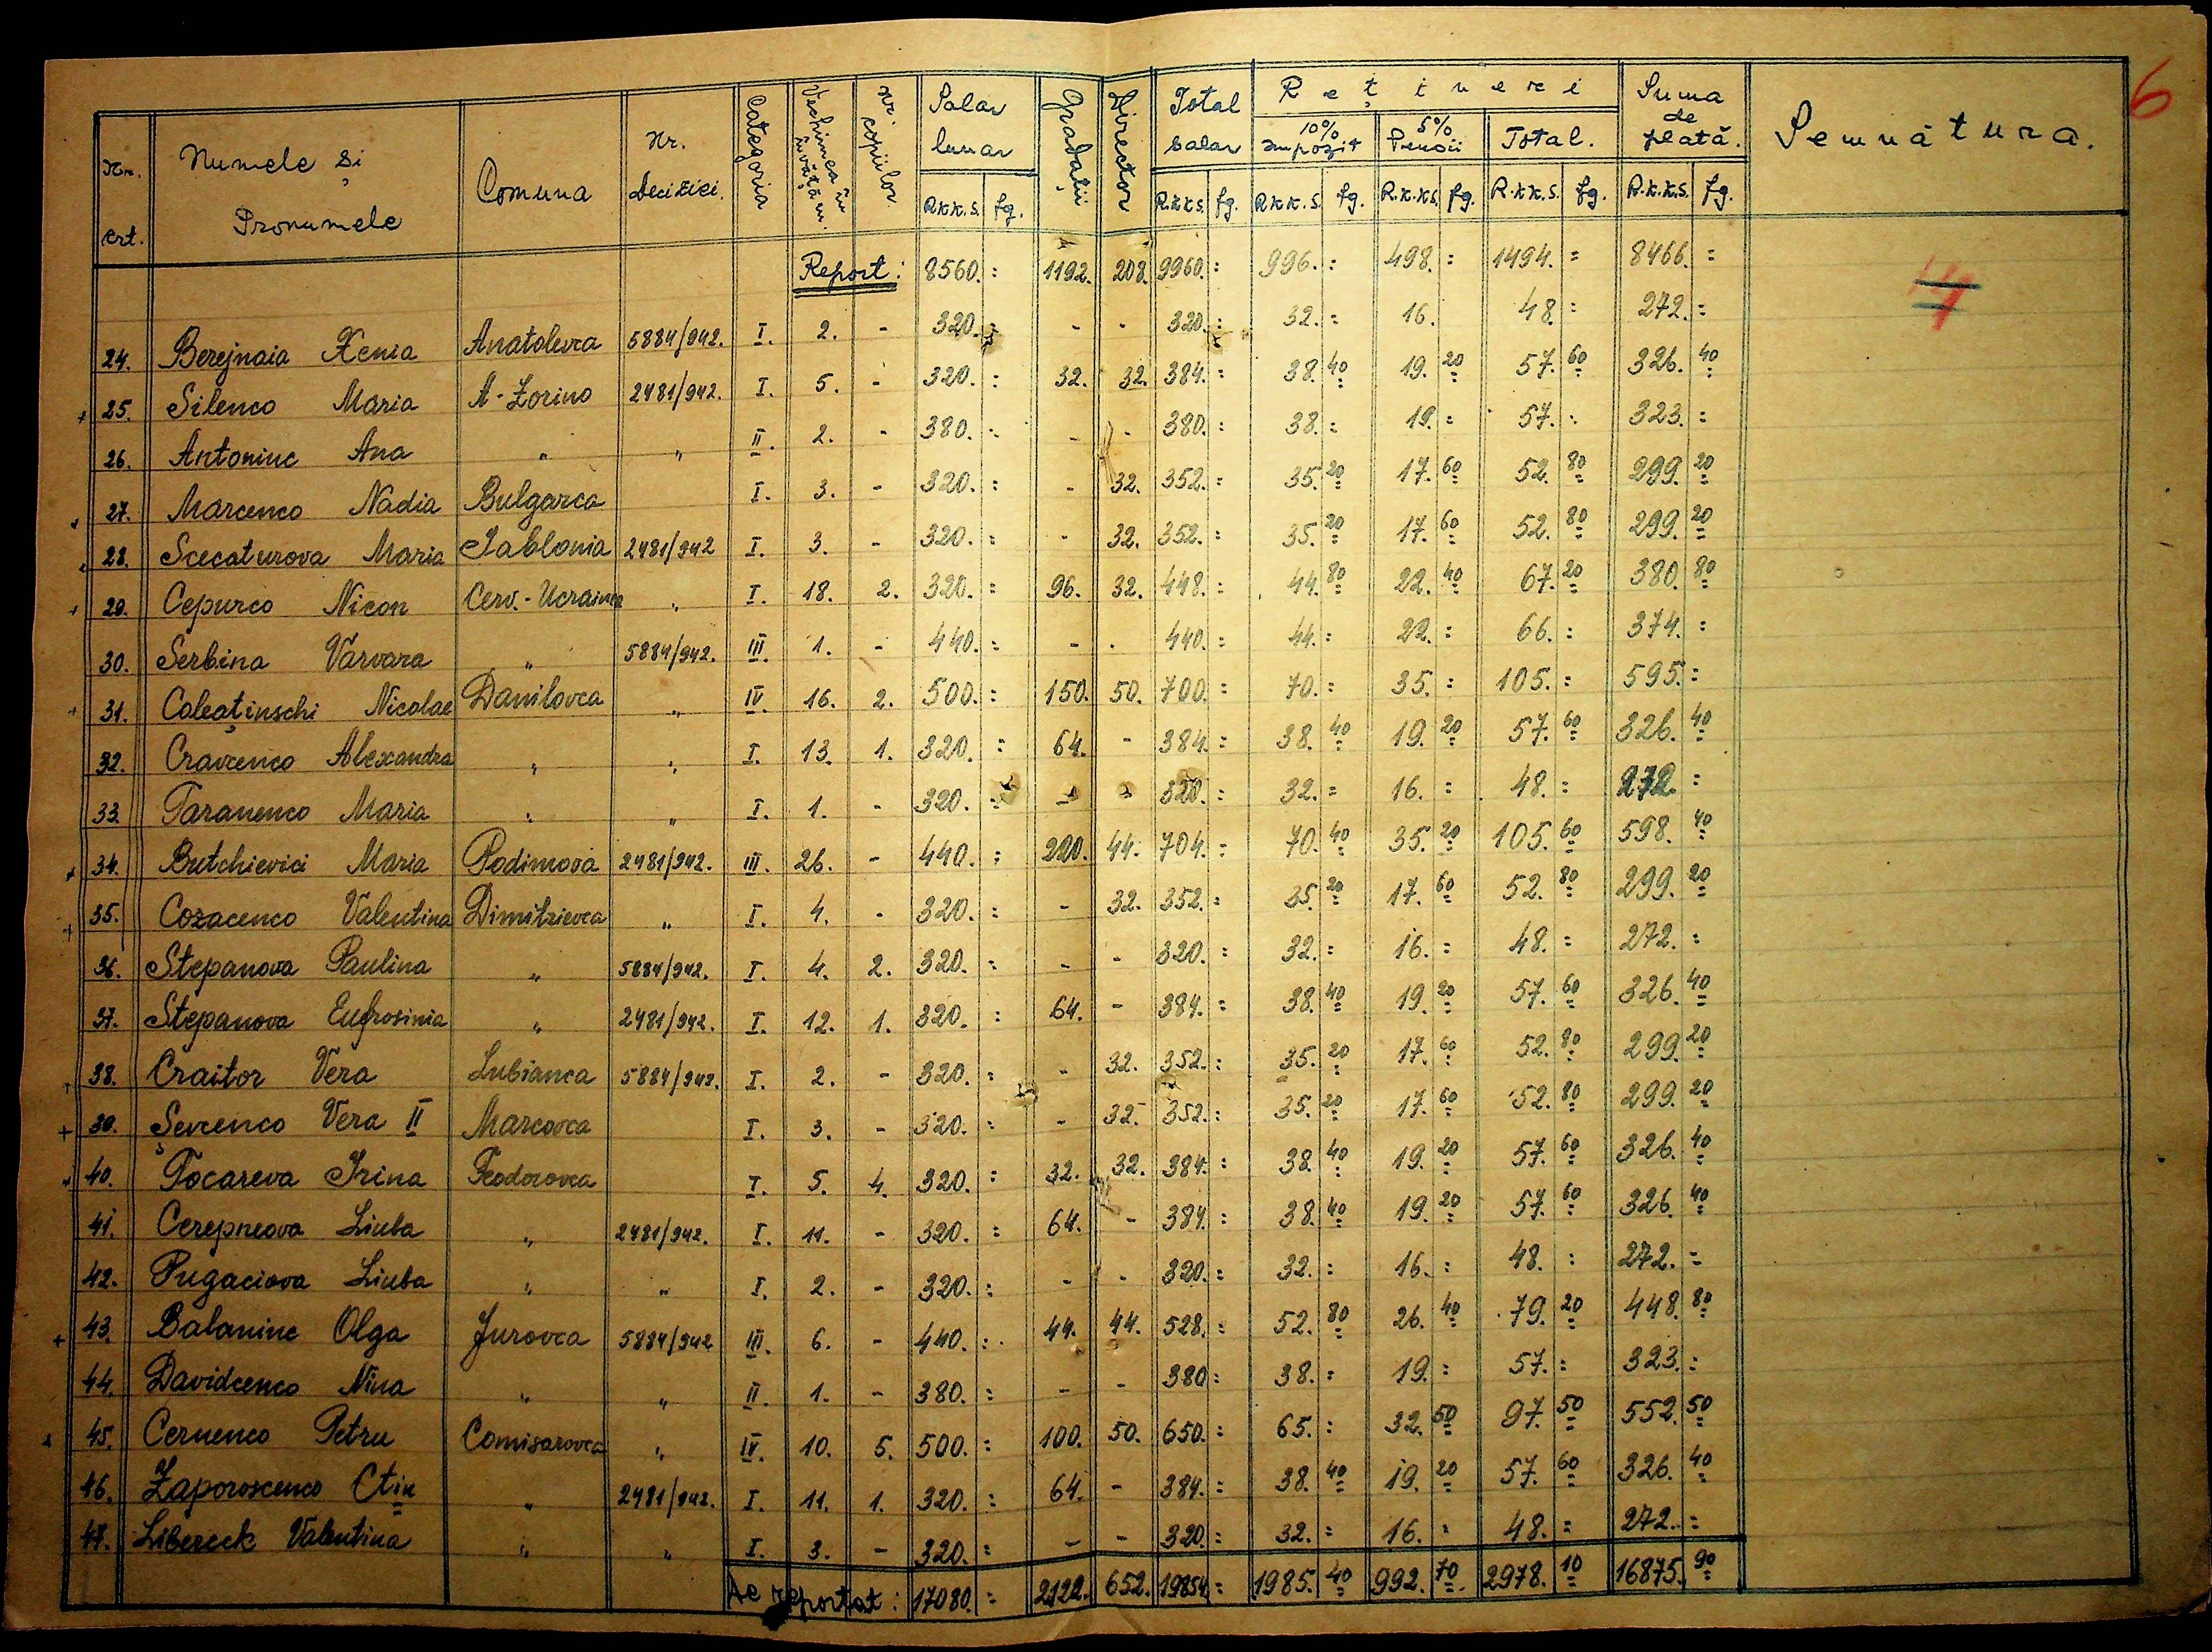 6
Nr. crt. | Numele și Pronumele | Comuna | Nr. deciziei. | Categoria | Vechimea în învățăm. | Nr. copiilor | Salar lunar R.k.k.s. fg. | Gradații | Director | Total salar R.k.k.s. fg. | Rețineri: 10% impozit R.k.k.s. fg. | 5% Pensii R.k.k.s. fg. | Total. R.k.k.s. fg. | Suma de plată. R.k.k.s. fg. | Semnătura.
Report: 8560.= 1192. 208. 9960.= 996.= 498.= 1494.= 8466.=
24. Berejnaia Xenia Anatolevca 5884/942. I. 2. - 320.= - - 320.= 32.= 16. 48.= 272.=
+ 25. Silenco Maria A-Zorino 2481/942. I. 5. - 320.= 32. 32. 384.= 38.40 19.20 57.60 326.40
26. Antoniuc Ana " " II. 2. - 380.= - - 380.= 38.= 19.= 57.= 323.=
+ 27. Marcenco Nadia Bulgarca I. 3. - 320.= - 32. 352.= 35.20 17.60 52.80 299.20
+ 28. Scecaturova Maria Iablonia 2481/942 I. 3. - 320.= - 32. 352.= 35.20 17.60 52.80 299.20
+ 29. Cepurco Nicon Cerv.-Ucrainca " I. 18. 2. 320.= 96. 32. 448.= 44.80 22.40 67.20 380.80
30. Serbina Varvara " 5884/942. III. 1. - 440.= - - 440.= 44.= 22.= 66.= 374.=
+ 31. Coleaținschi Nicolae Danilovca " IV. 16. 2. 500.= 150. 50. 700.= 70.= 35.= 105.= 595.=
32. Cravcenco Alexandra " " I. 13. 1. 320.= 64. - 384.= 38.40 19.20 57.60 326.40
33. Taranenco Maria " " I. 1. - 320.= - - 320.= 32.= 16.= 48.= 272.=
+ 34. Butchievici Maria Podimova 2481/942. III. 26. - 440.= 220. 44. 704.= 70.40 35.20 105.60 598.40
+ 35. Cozacenco Valentina Dimitrievca " I. 4. - 320.= - 32. 352.= 35.20 17.60 52.80 299.20
36. Stepanova Paulina " 5884/942. I. 4. 2. 320.= - - 320.= 32.= 16.= 48.= 272.=
37. Stepanova Eufrosinia " 2481/942. I. 12. 1. 320.= 64. - 384.= 38.40 19.20 57.60 326.40
+ 38. Craitor Vera Lubianca 5884/942. I. 2. - 320.= - 32. 352.= 35.20 17.60 52.80 299.20
+ 39. Șevcenco Vera II Marcovca I. 3. - 320.= - 32. 352.= 35.20 17.60 52.80 299.20
+ 40. Tocareva Irina Feodorovca I. 5. 4. 320.= 32. 32. 384.= 38.40 19.20 57.60 326.40
41. Cerepneova Liuba " 2481/942. I. 11. - 320.= 64. - 384.= 38.40 19.20 57.60 326.40
42. Pugaciova Liuba " " I. 2. - 320.= - - 320.= 32.= 16.= 48.= 272.=
+ 43. Balaninc Olga Jurovca 5884/942 III. 6. - 440.= 44. 44. 528.= 52.80 26.40 79.20 448.80
44. Davidcenco Nina " " II. 1. - 380.= - - 380.= 38.= 19.= 57.= 323.=
+ 45. Cernenco Petru Comisarovca " IV. 10. 5. 500.= 100. 50. 650.= 65.= 32.50 97.50 552.50
46. Zaporoscenco Ctin " 2481/942. I. 11. 1. 320.= 64. - 384.= 38.40 19.20 57.60 326.40
47. Libereck Valentina " " I. 3. - 320.= - - 320.= 32.= 16.= 48.= 272.=
De reportat: 17080.= 2122. 652. 19854.= 1985.40 992.70 2978.10 16875.90